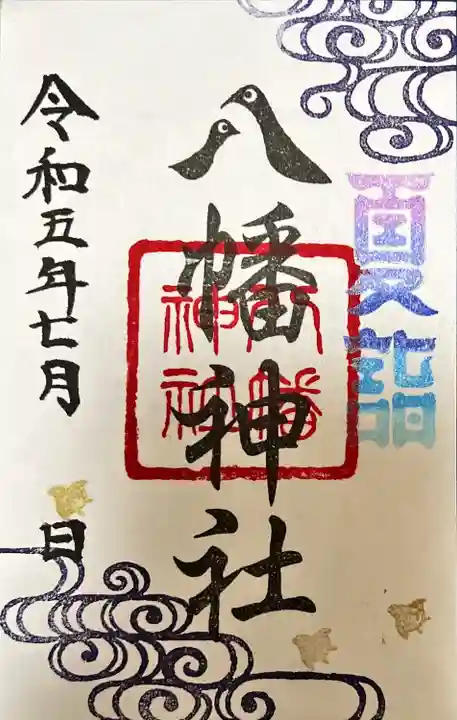 夏詣
八幡神社
八幡
神社
令和五年七月
日